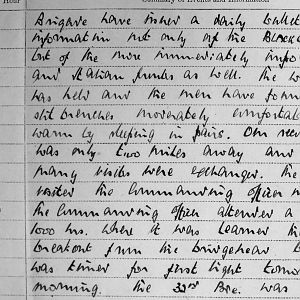 Hour Summary of Events and Information
Brigade have issued a daily bullet
information not only of the BLACKC
but of the more immediately impo
and Italian fronts as well. The w
was held and the men have foun
slit trenches moderately comfortab
warm by sleeping in pairs. Our rea
was only two miles away and
many visits were exchanged. The
visited the Commanding officer
the Commanding officer attended a
1000 hrs. where it was learned the
breakout from the bridgehead b
was timed for first light tomo
morning. The 33rd Bde. was